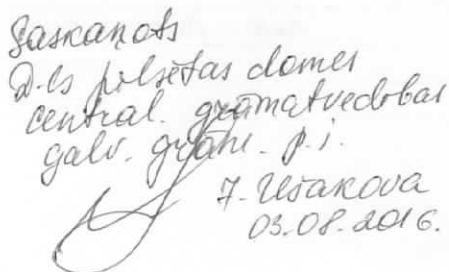 Saskaņots
D-ls pilsētas domes
central. grāmatvedības
galv. grām. p.i.
J. Ušakova
03.08.2016.